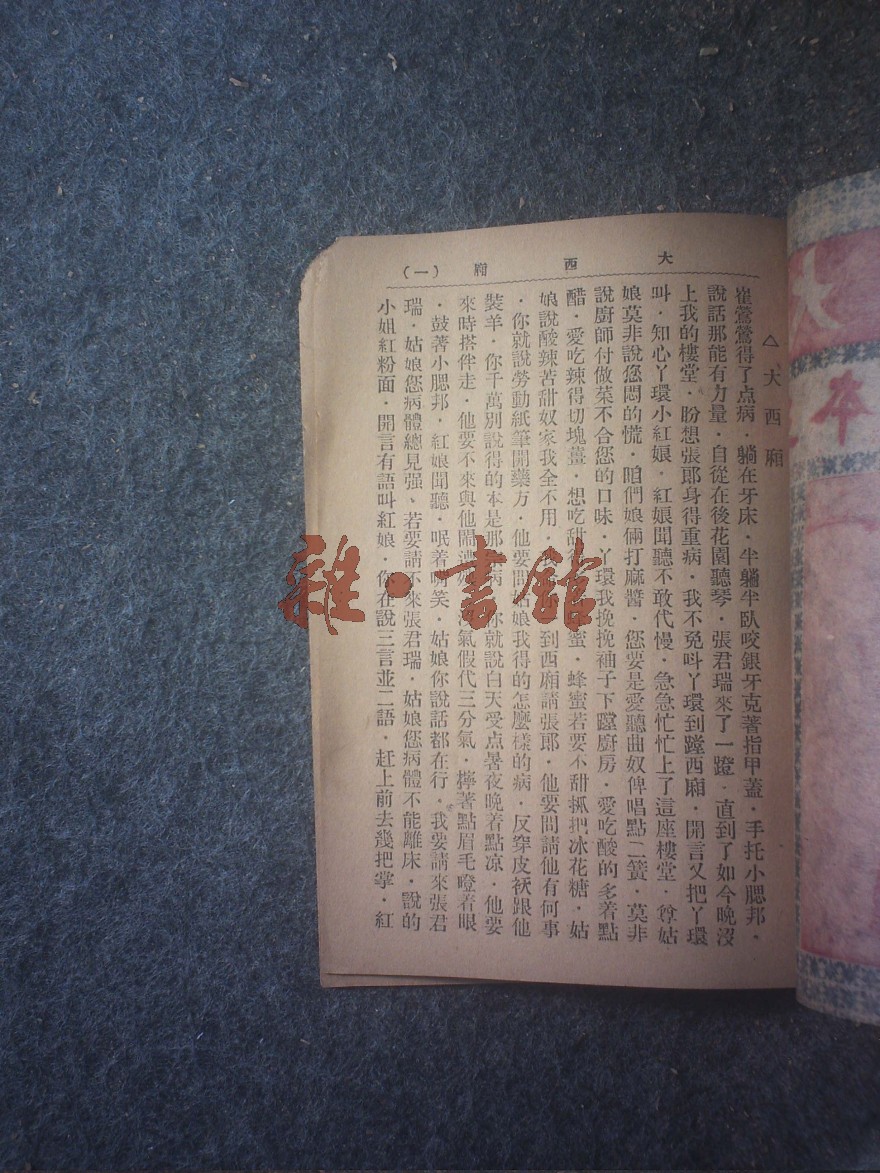 大西廂 (一)
△大西廂
崔鶯鶯得了点病．躺在牙床．半躺半臥咬銀牙克著指甲蓋．手托小腮邦．
說話那能有力量．自從在後花園聽琴．張君瑞來了一蹬．直到了如今晚沒
上我的樓堂．盼想張郎身得重病．我不免呌丫環到蹚西廂．開言又把丫環
叫．知心丫環小紅娘．紅娘聞聽不敢代慢．急急忙忙上了這座樓堂．尊姑
娘莫非說您悶的慌．咱們娘倆打麻醬．您要是愛聽曲奴俾唱點二簧．莫非
說廚師付做菜不合您的口味．丫環我挽挽袖子下蹚廚房．愛吃酸的多着點
醋．愛吃辣得切塊薑．想吃甜得蜜．蜂蜜若要不甜抓把冰花糖．姑
娘說酸辣苦甜奴家我全不用．到西廂請張郎．他要問請他有何事
．你就說勞動紙筆開藥方．他要問姑娘我得的怎麼樣的病．反穿皮袄跟他
裝羊．你千萬別說得的本是那病．你就說白天受点暑夜晚着點凉．他要
來時搭伴走．他要不來與他鬧氣假代三分氣．檸著點眉毛瞪着眼
．鼓著小腮邦．紅娘聞聽．哌着呵笑．姑娘你說話都在行．我要請來張君
瑞．姑娘您病體總見强、若要請不來張君瑞．姑娘您病體不能離床．說的
小姐紅粉面．開言有語叫紅娘．你在說三言並二語．赶上前去幾把掌．紅
雜·書館
大
本